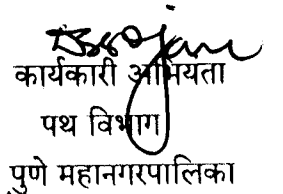 कार्यकारी अभियता
पथ विभाग
पुणे महानगरपालिका